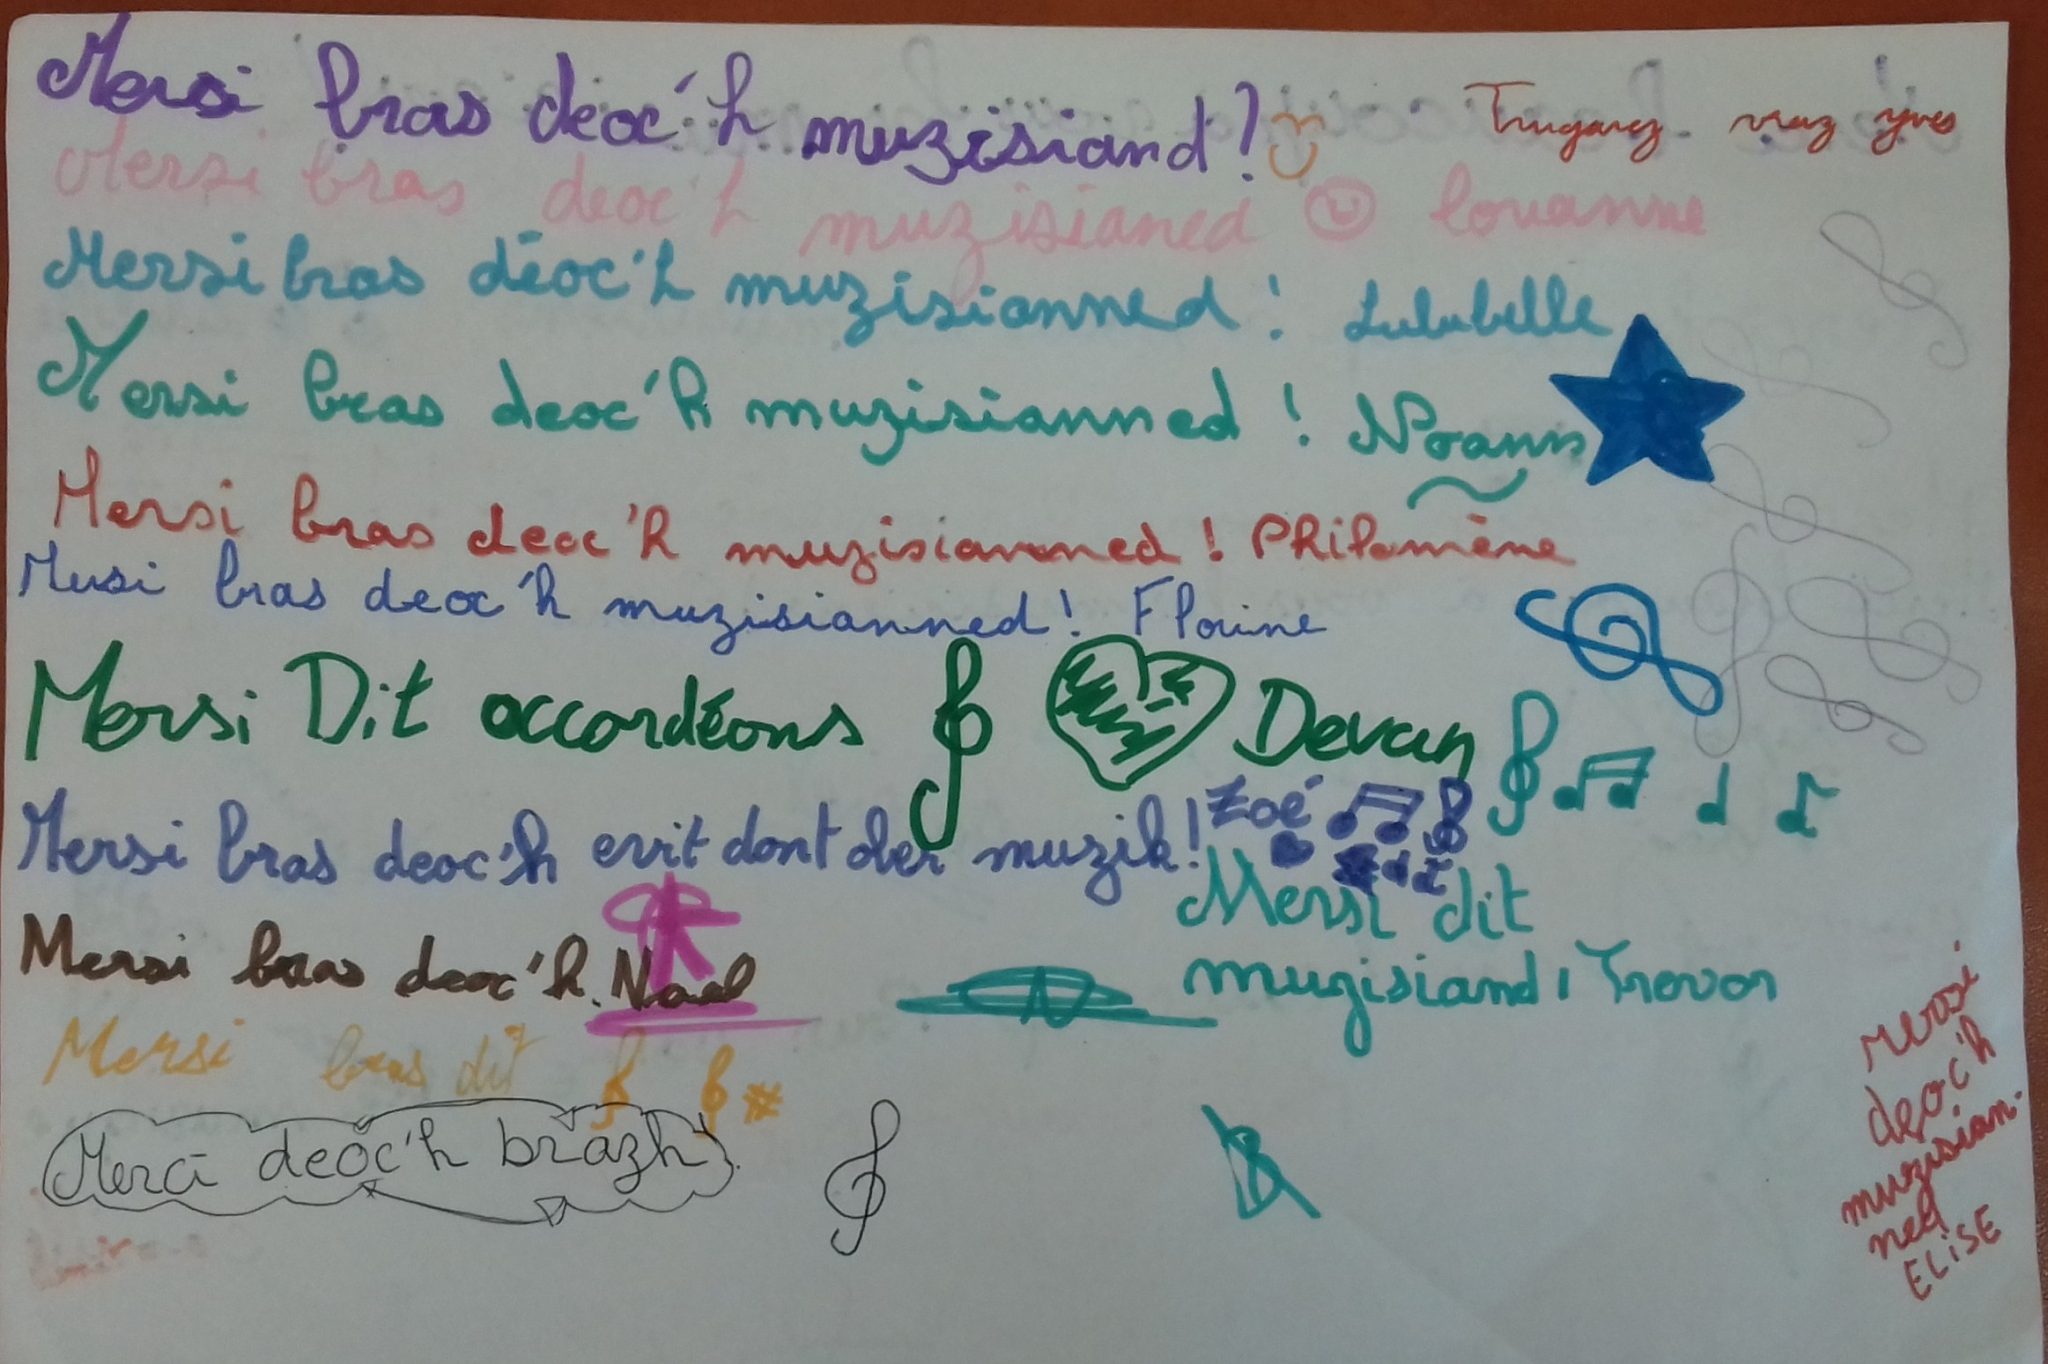 Mersi bras deoc'h muzisiand !
Trugarez vraz Yves
Mersi bras deoc'h muzisianed louanne
Mersi bras déoc'h muzisianned ! Lulubelle
Mersi bras deoc'h muzisianned ! Noann
Mersi bras deoc'h muzisianned ! Philomène
Mersi bras deoc'h muzisianned ! Florine
Mersi Dit accordéons Devan
Mersi bras deoc'h evit dont der muzik ! Zoé
Mersi dit
muzisiand ! Trevor
Mersi bras deoc'h. Nael
Mersi bras dit
Merci deoc'h brazh
N
mersi
deoc'h
muzisian-
ned
ELISE